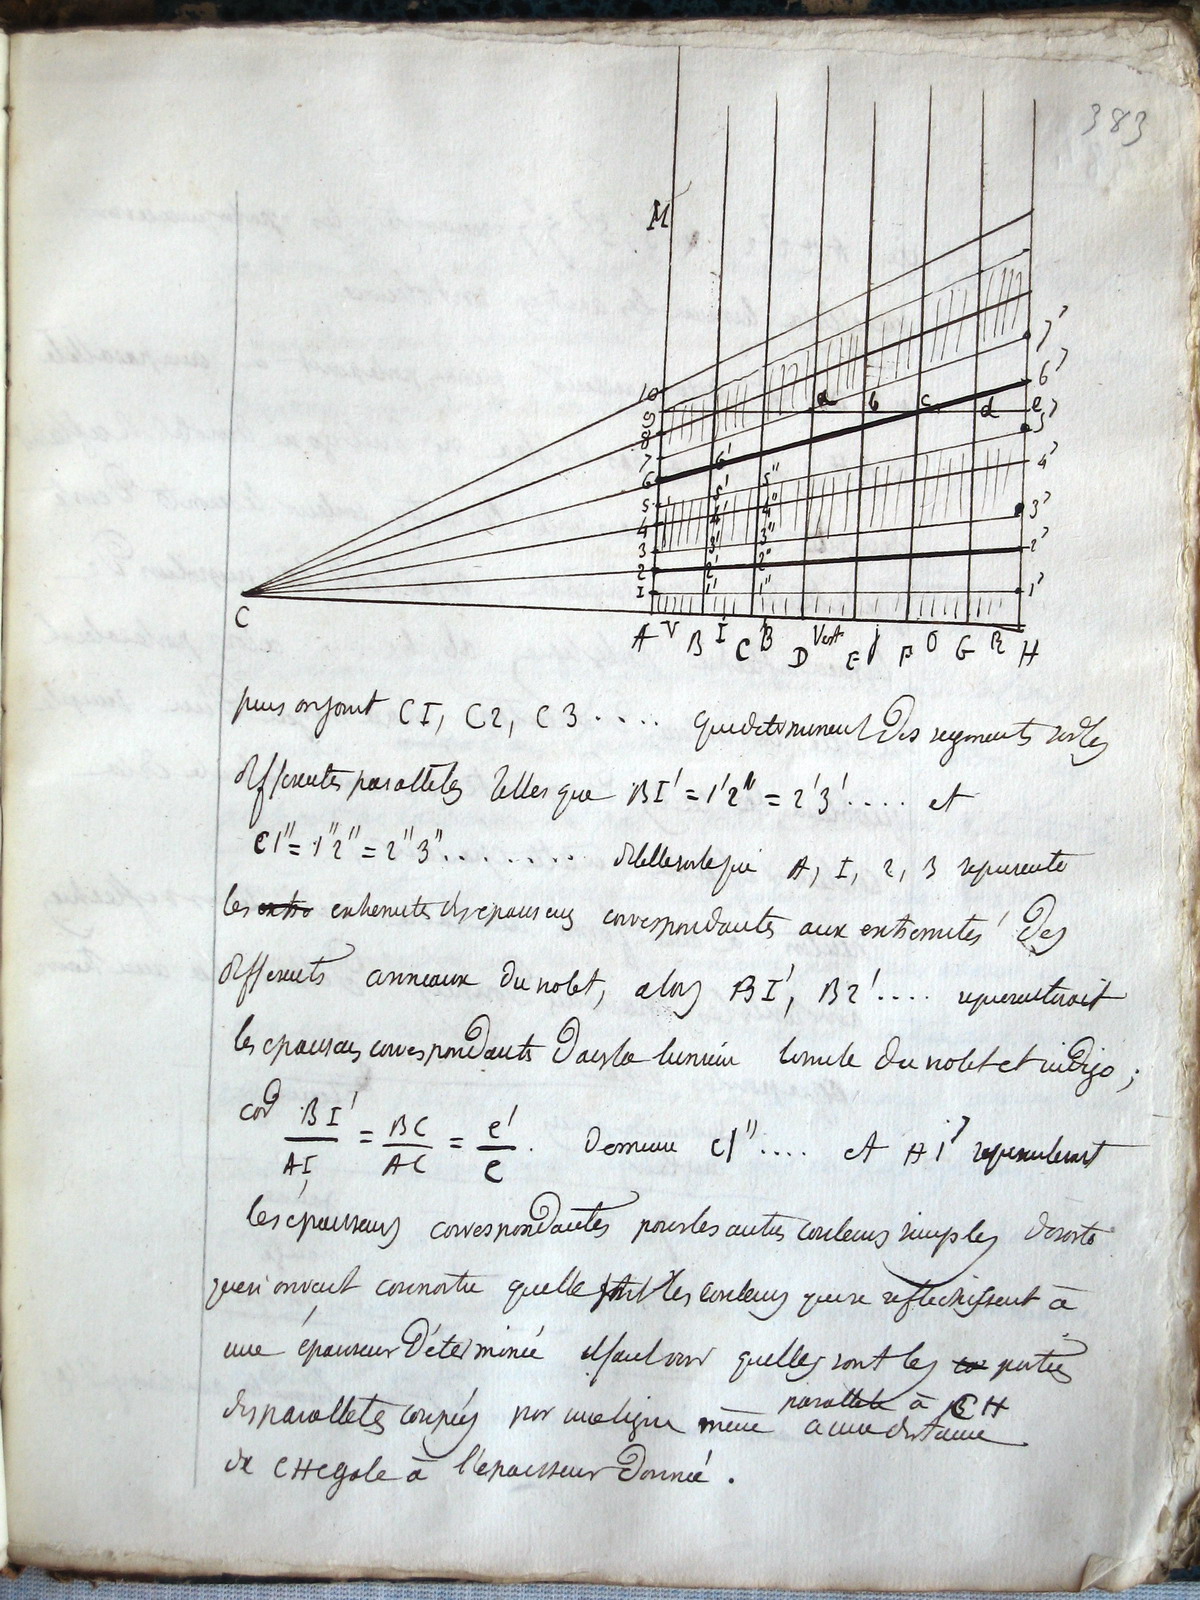 383
M
10
9
8
7
6
5
4
3
2
I
6' 5' 4' 3' 2' 1'
5" 4" 3" 2" 1"
a b c d e
7'
6'
5'
4'
3'
2'
1'
C
A V B I C B D Vert E J F O G R H
puis on joint CI, C2, C3 .... qui determinent Des segments sur les
differentes paralleles telles que BI' = 1'2" = 2'3' .... et
C1" = 1"2" = 2"3" ........ de telle sorte que A, I, 2, 3 represente
les extremités des epaisseurs correspondantes aux extremités Des
differents anneaux du violet, alors BI', B2' .... representerait
les epaisseurs correspondants Dans la lumiere limite du violet et indigo ;
car BI'/AI = BC/AC = e'/e . De meme C1" .... et H1' representeront
les épaisseurs correspondantes pour les autres couleurs simples de sorte
que si on veut connoitre quelle sont les couleurs qui se reflechissent à
une épaisseur Déterminée il faut voir quelles sont les parties
des paralleles coupées par une ligne menée parallele à CH a une distance
de CH egale à l'épaisseur Donnée .